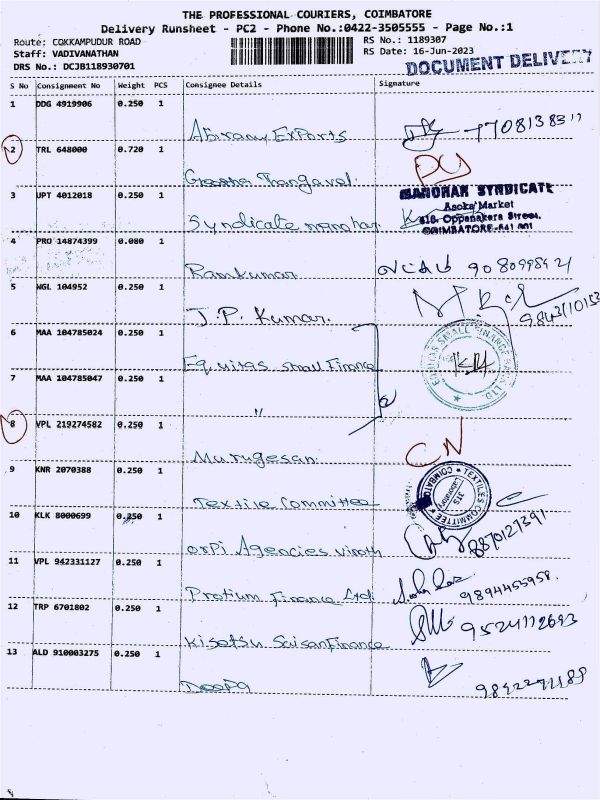 THE PROFESSIONAL COURIERS, COIMBATORE
Delivery Runsheet - PC2 - Phone No.:0422-3505555 - Page No.:1
Route: COKKAMPUDUR ROAD RS No.: 1189307
Staff: VADIVANATHAN RS Date: 16-Jun-2023
DRS No.: DCJB118930701 DOCUMENT DELIVERY
S No Consignment No Weight PCS Consignee Details Signature
1 DDG 4919906 0.250 1
Abiramy Exports
2 TRL 648000 0.720 1
Thangavel.
3 UPT 4012018 0.250 1 MANOHAR SYNDICATE
Asoka Market
Syndicate manohar 618, Oppanakara Street,
COIMBATORE-641 001
4 PRO 14874399 0.080 1
Ramkumar
5 WGL 104952 0.250 1
J.P. Kumar. 9843110153
6 MAA 104785024 0.250 1
Equitas small Finance EQUITAS SMALL FINANCE BANK LTD.
7 MAA 104785047 0.250 1
"
8 VPL 219274582 0.250 1 CN
Murugesan
9 KNR 2070388 0.250 1
Textile Committee TEXTILES COMMITTEE COIMBATORE Laboratory
10 KLK 8000699 0.250 1
Agencies 8870127391
11 VPL 942331127 0.250 1
Protium Finance Ltd. 9894455958.
12 TRP 6701802 0.250 1
Kisetsu Saison Finance 9524112693
13 ALD 910003275 0.250 1
Deepa